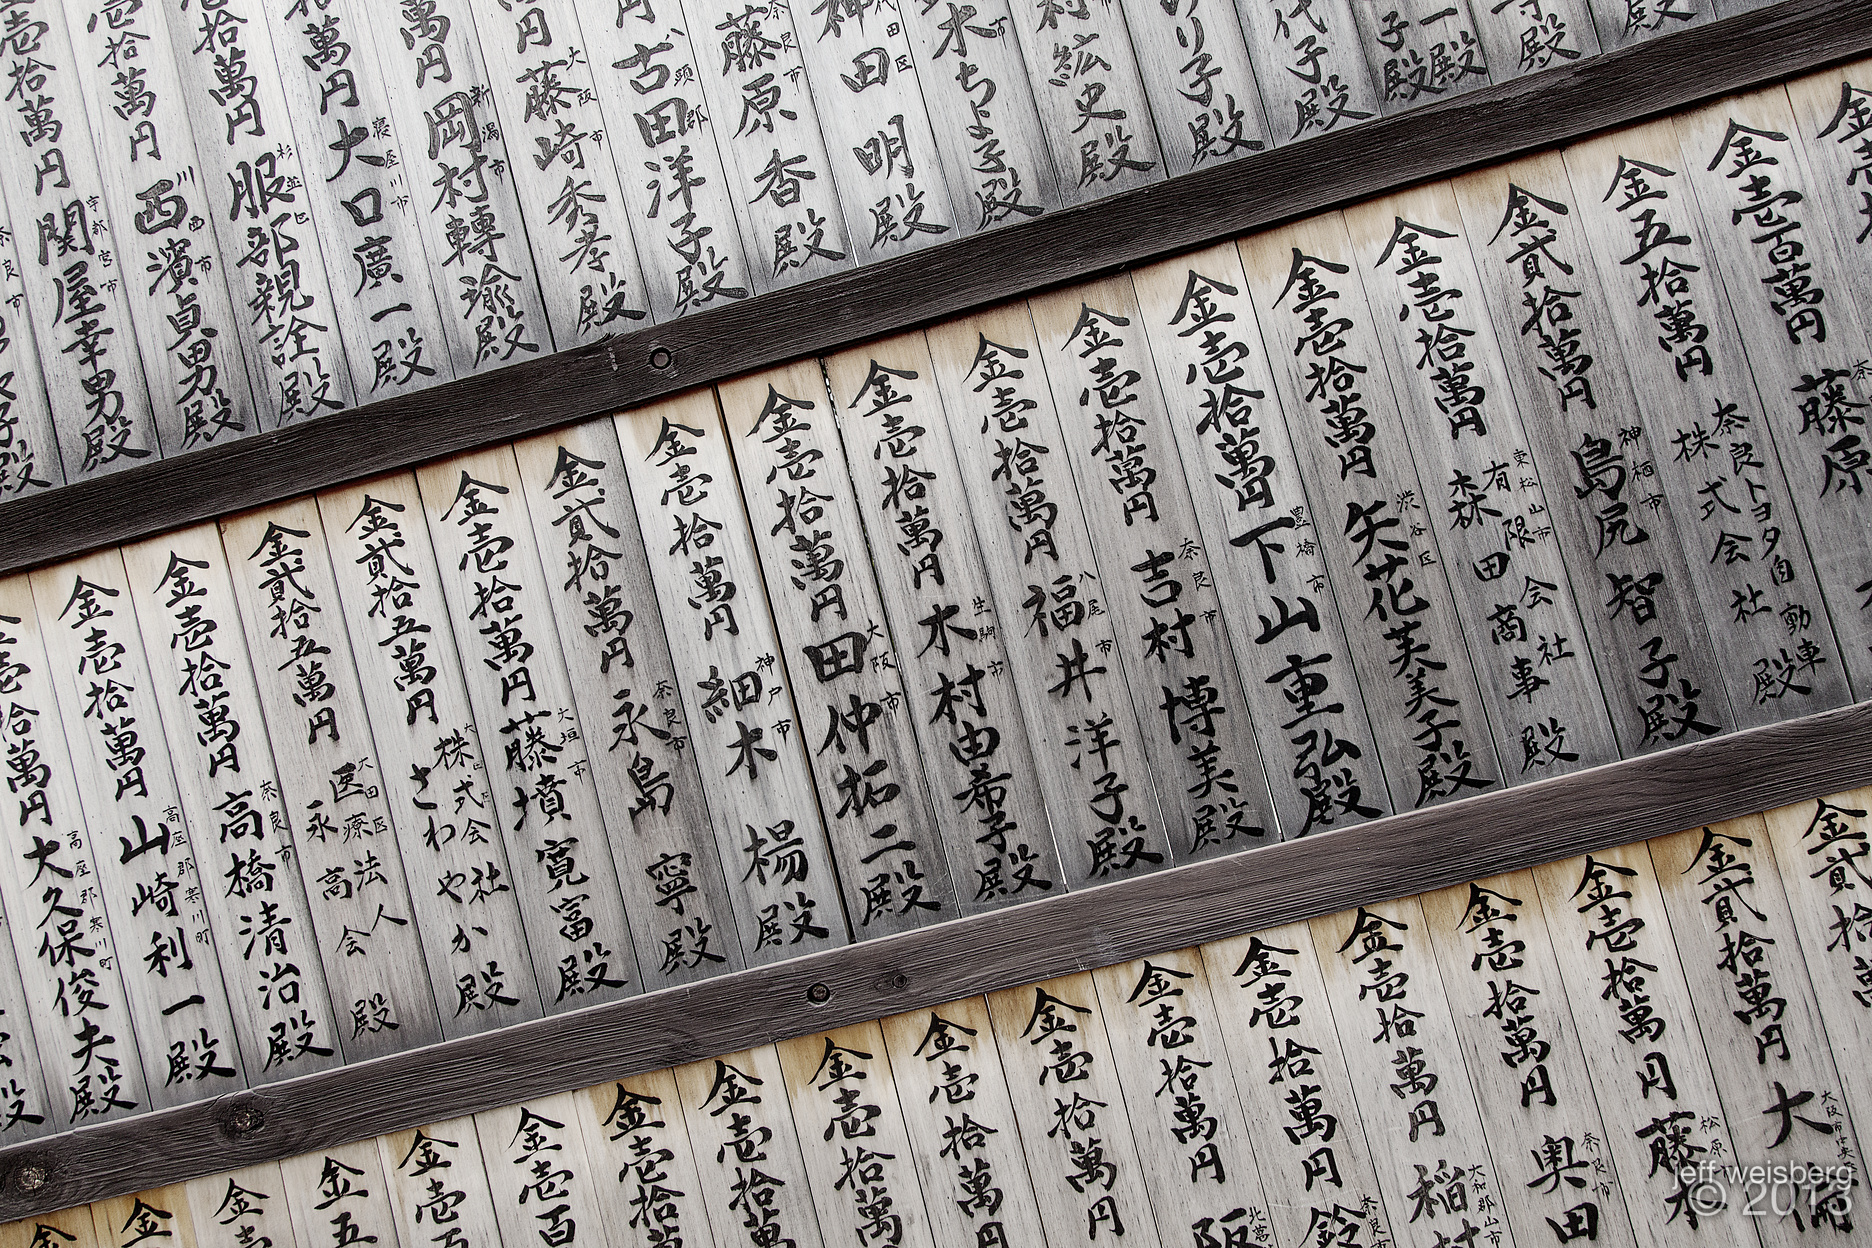 壱拾萬円 宇都宮市 関屋幸男殿
壱拾萬円 川西市 西濱貞男殿
拾萬円 杉並区 服部親詮殿
拾萬円 寝屋川市 大口廣一殿
萬円 新潟市 岡村轉瑜殿
円 大阪市 藤崎秀孝殿
円 古田洋子殿
奈良市 藤原香殿
神田明殿
木ちよ子殿
村紘史殿
り子殿
代子殿
殿
殿
金
金壱百萬円 藤原
金五拾萬円 奈良トヨタ自動車株式会社殿
金貳拾萬円 神栖市 島尻智子殿
金壱拾萬円 東松山市 有限会社森田商事殿
金壱拾萬円 渋谷区 矢花芙美子殿
金壱拾萬円 豊橋市 下山重弘殿
金壱拾萬円 奈良市 吉村博美殿
金壱拾萬円 八尾市 福井洋子殿
金壱拾萬円 生駒市 木村由希子殿
金壱拾萬円 大阪市 田仲拓二殿
金壱拾萬円 神戸市 細木楊殿
金貳拾萬円 奈良市 永島寧殿
金壱拾萬円 大垣市 藤墳寛富殿
金貳拾五萬円 株式会社さわやか殿
金貳拾五萬円 大田区 医療法人永高会殿
金壱拾萬円 奈良市 高橋清治殿
金壱拾萬円 高座郡寒川町 山崎利一殿
金壱拾萬円 高座郡寒川町 大久保俊夫殿
金貳拾
金貳拾萬円 大阪市中央 大
金壱拾萬円 松原 藤
金壱拾萬円 奈良市 奥田
金壱拾萬円 大和郡山市 稲村
金壱拾萬円 奈良市 鈴
金壱拾萬円 阪
金壱拾萬円
金壱拾萬円
金壱拾萬
金壱拾萬
金壱拾
金壱百
金壱百
金五
金壱
金
金
jeff weisberg
© 2013